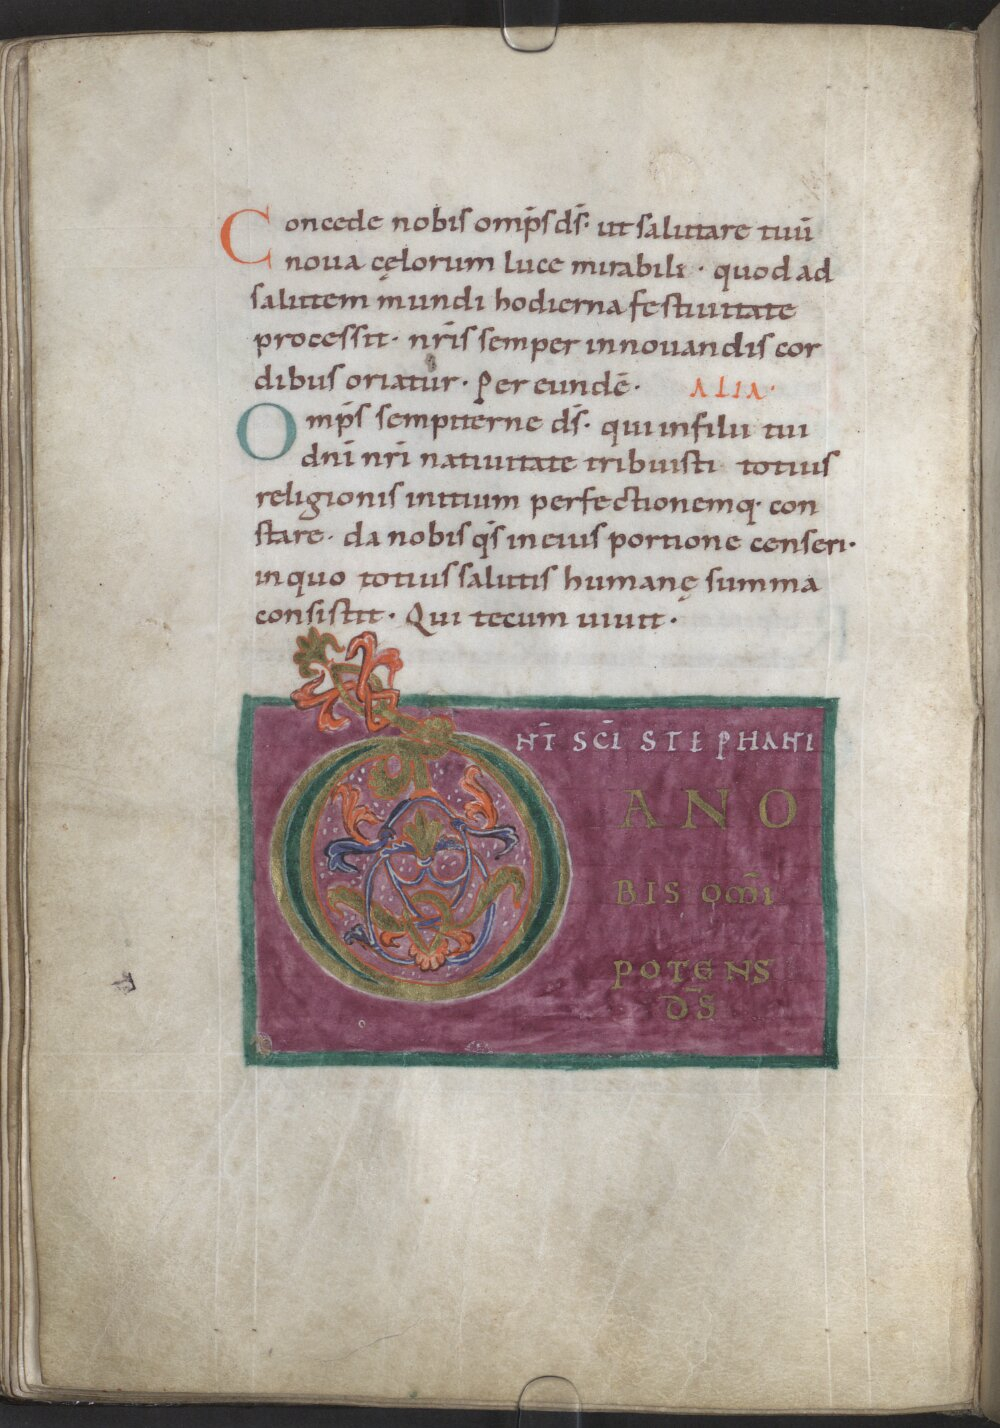 Concede nobis omp̄s ds̄· ut salutare tuū
noua cęlorum luce mirabili · quod ad
salutem mundi hodierna festiuitate
processit · nr̄is semper innouandis cor
dibus oriatur · Per eundē · ALIA·
Omp̄s sempiterne ds̄· qui in filii tui
dn̄i nr̄i natiuitate tribuisti totius
religionis initium perfectionemq· con
stare · da nobis qs̄ in eius portione censeri·
in quo totius salutis humanę summa
consistit · Qui tecum uiuit ·
NT̄ SCĪ STEPHANI
D A NO
BIS OM̄I
POTENS
DS̄